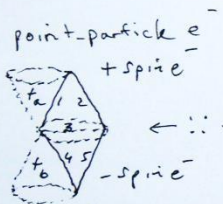 point-particle e⁻
+spin e⁻
ta
1 2
3
← ::
tb
4 5
-spin e⁻